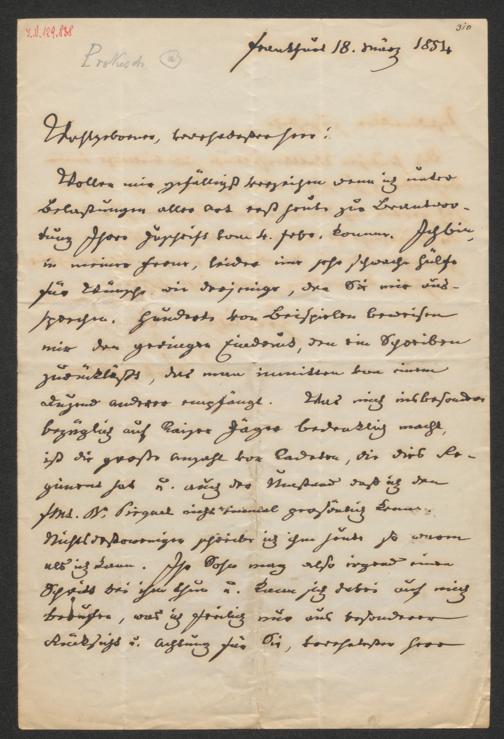 I.N. 129.838
310
Prokesch
Frankfurt 18. März 1854
Wohlgeborner, verehrtester Herr!
Wollen mir gefälligst verzeihen wenn ich unter
Belastungen aller Art erst heute zur Beantwor-
tung Ihrer Zuschrift vom 4. Febr. komme. Ich bin,
in meiner Ferne, leider nur sehr schwache Hülfe
für Wünsche wie derjenige, den Sie mir aus-
sprechen. Hunderte von Beispielen beweisen
mir den geringen Eindruck, den ein Schreiben
zurückläßt, das man inmitten von einem
Dutzend anderer empfängt. Was mich insbesondere
bezüglich auf Kaiser Jäger bedenklich macht,
ist die große Anzahl von Kadeten, die dies Re-
giment hat u. auch der Umstand daß ich den
FML. Br. nicht einmal persönlich kenne.
Nichtsdestoweniger schreibe ich ihm heute so warm
als ich kann. Ihr Sohn mag also irgend einen
Schritt bei ihm thun u. kann sich dabei auf mich
berufen, was ich freilich nur aus besonderer
Rücksicht u. Achtung für Sie, verehrtester Herr